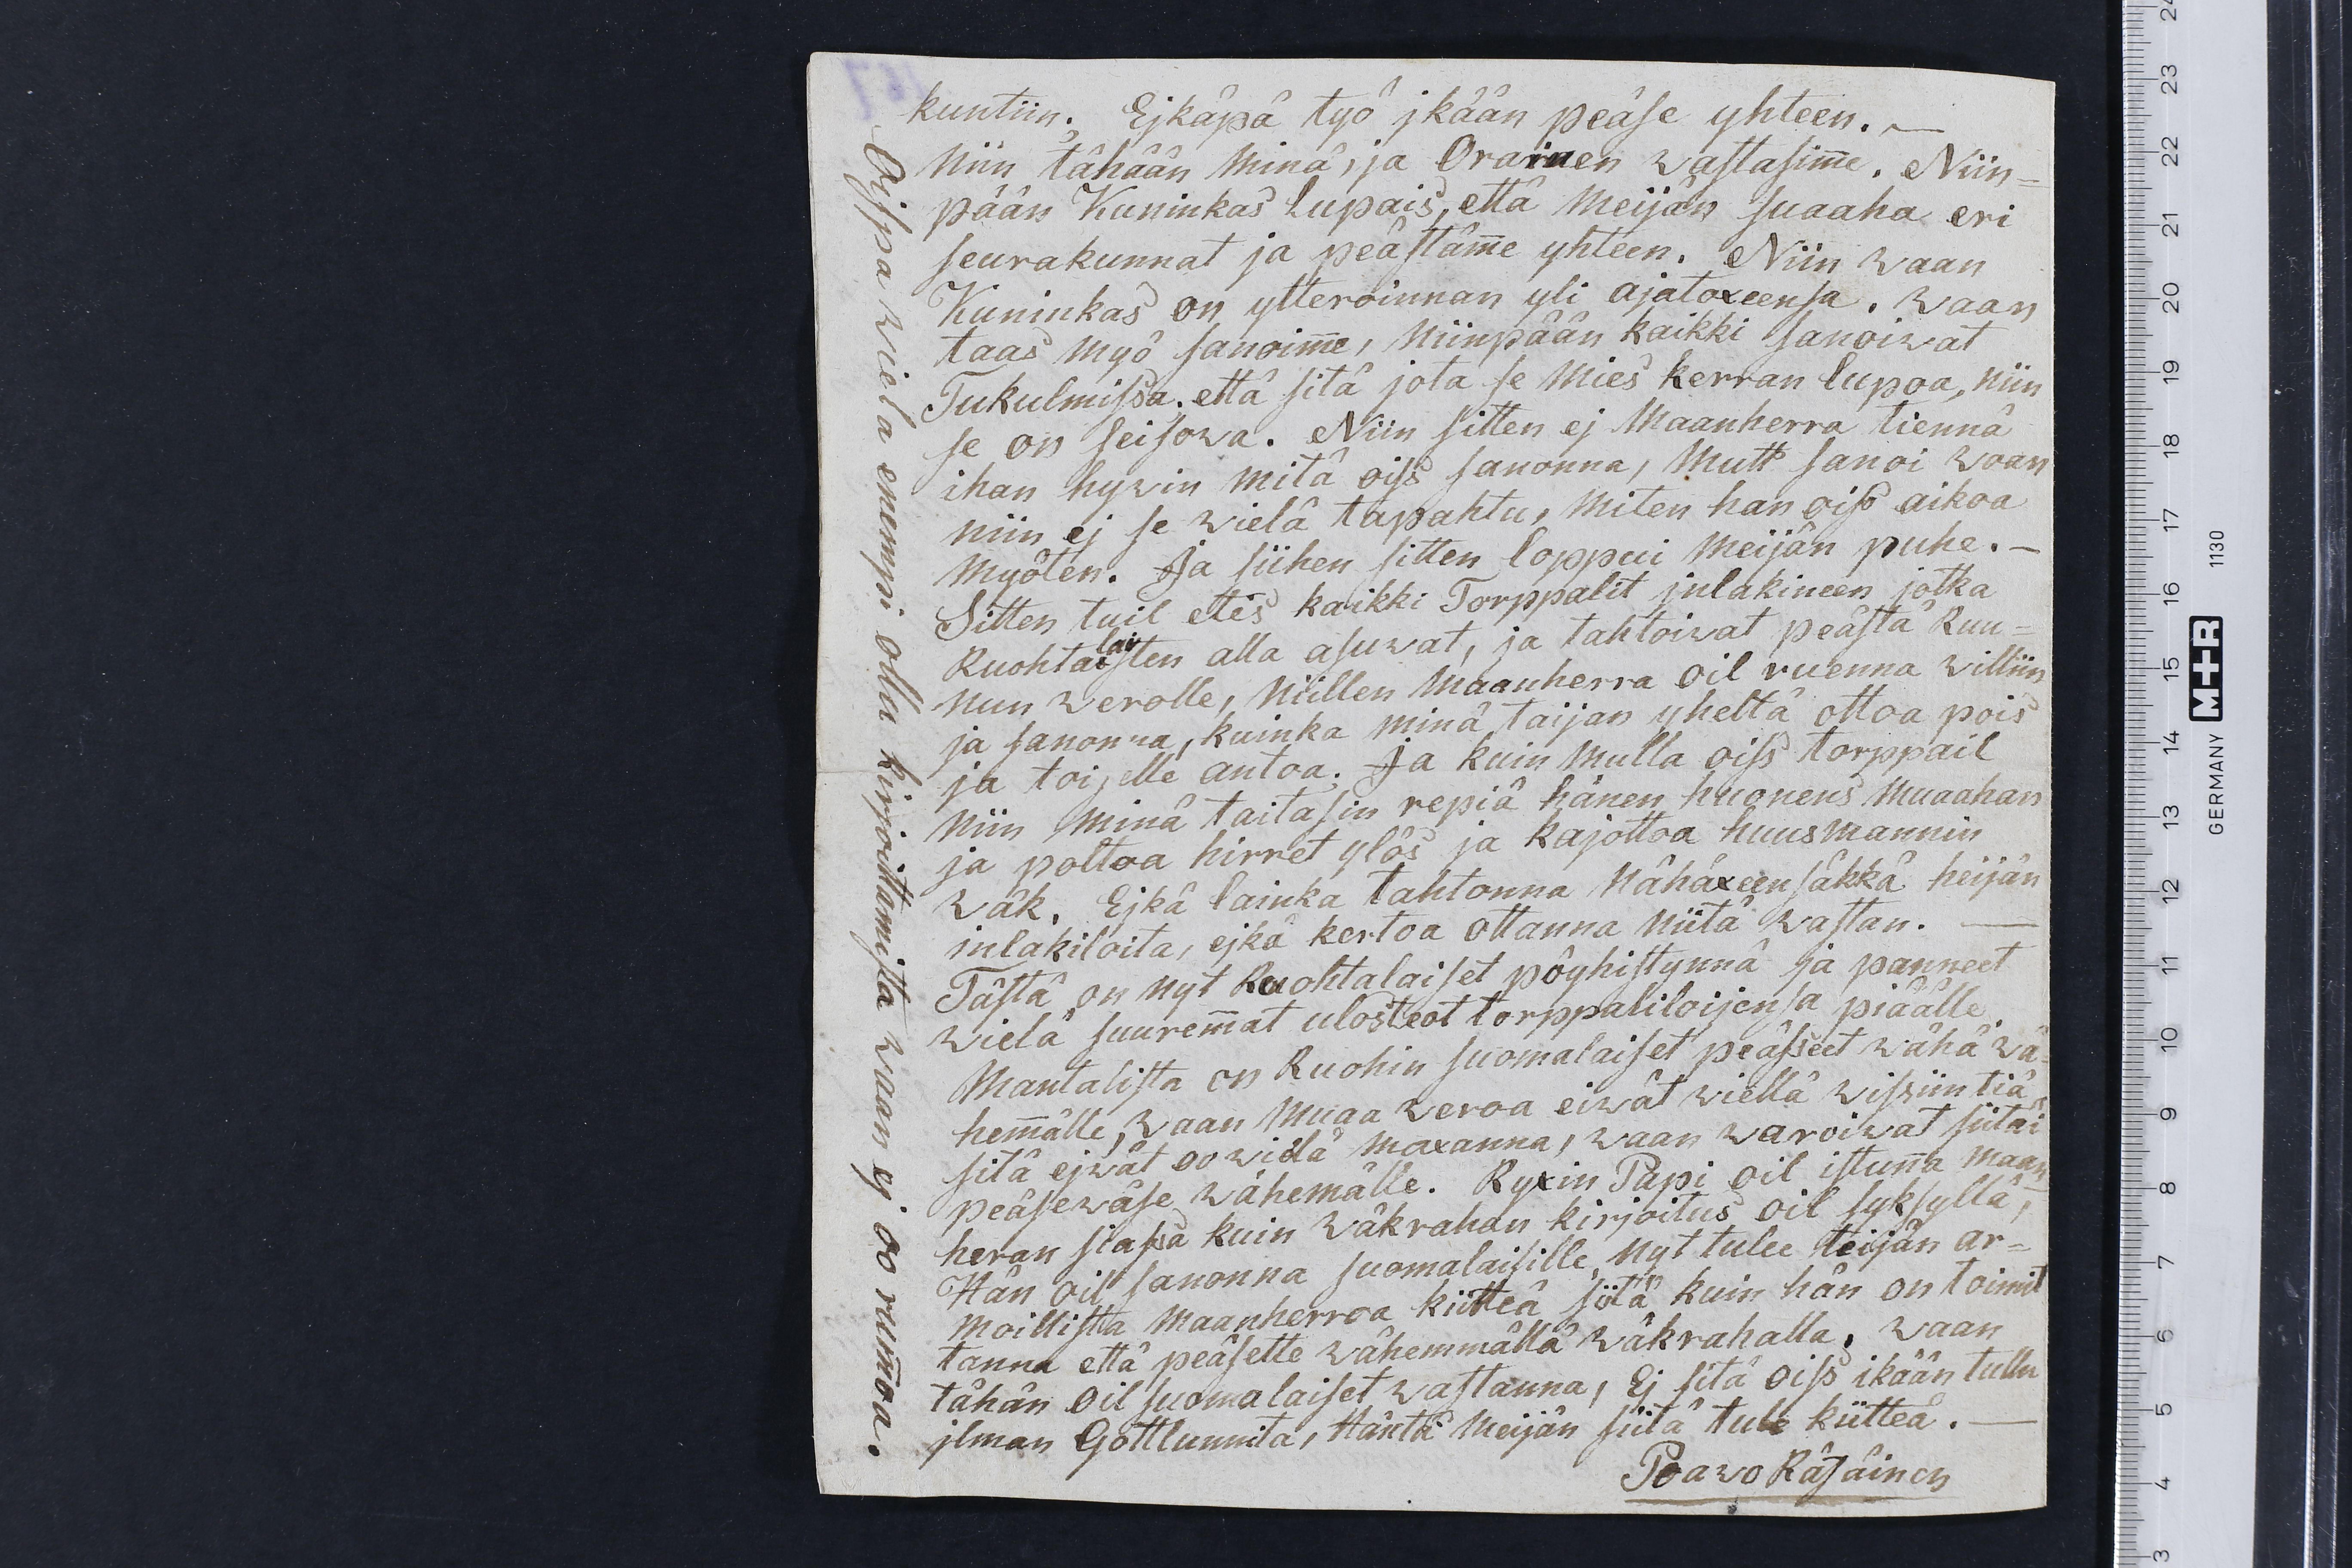 kuntiin. Ejkäpä työ jkään peäse yhteen. —
Niin tähään minä, ja Orainen wastasim̅e. Niin=
pään Kuninkas lupais, että meijän suaaha eri
seurakunnat ja peästäm̅e yhteen. Niin waan
Kuninkas on ytteroinnan yli ajatoxeensa. waan
taas myö sanoim̅e, niinpään kaikki sanoiwat
Tukulmissa. että sitä jota se mies kerran lupoa, niin
se on seisowa. Niin sitten ej Maanherra tiennä
ihan hywin mitä oiss sanonna, mutt sanoi woan
niin ej se wielä tapahtu, miten han oiss aikoa
myöten. Ja siihen sitten loppui meijän puhe. —
Sitten tuil etes kaikki Torppalit jnlakineen jotka
Ruohtalaisten alla asuwat, ja tahtoiwat peästä Ruu=
nun werolle, Niillen Maanherra oil ruenna williin
ja sanonna, kuinka minä taijan yheltä ottoa pois
ja toiselle antoa. Ja kuin mulla oiss torppail
niin minä taitasin repiä hänen huonens muaahan
ja poltoa hirret ylös ja kajottoa huusmannin
wäk. Ejkä lainka tahtonna nähäxeensäkkä heijän
inlakiloita, ejkä kertoa ottanna niitä wastan. —
Tästä on nyt Ruohtalaiset pöyhistynnä ja panneet
wielä suurem̅at ulosteot torppaliloijensa piäälle.
Mantalista on Ruohin suomalaiset peässeet wähä wä=
hem̅älle, waan muaa weroa eiwät wiellä wissiin tiä
sitä ejwät oo wielä maxanna, waan waroiwat siitäi
peäsewäse wähemälle. Ryxin Papi oil istun̅a maan
heran siassa kuin wäkrahan kirjoitus oil syksyllä,
Hän oil sanonna suomalaisille, nyt tulee teijän ar=
moillista Maanherroa kiitteä siitä kuin hän on toimit
tanna että peäsette wähemmällä wäkrahalla. waan
tähän oil suomalaiset wastanna, Ej sitä oiss ikään tullu
jlman Gottlunnita, Häntä meijän siitä tule kiitteä. —
Poawo Räsäinen
Oisspa wielä enempi olla kirjoittamista waan ej oo rum̅oa.